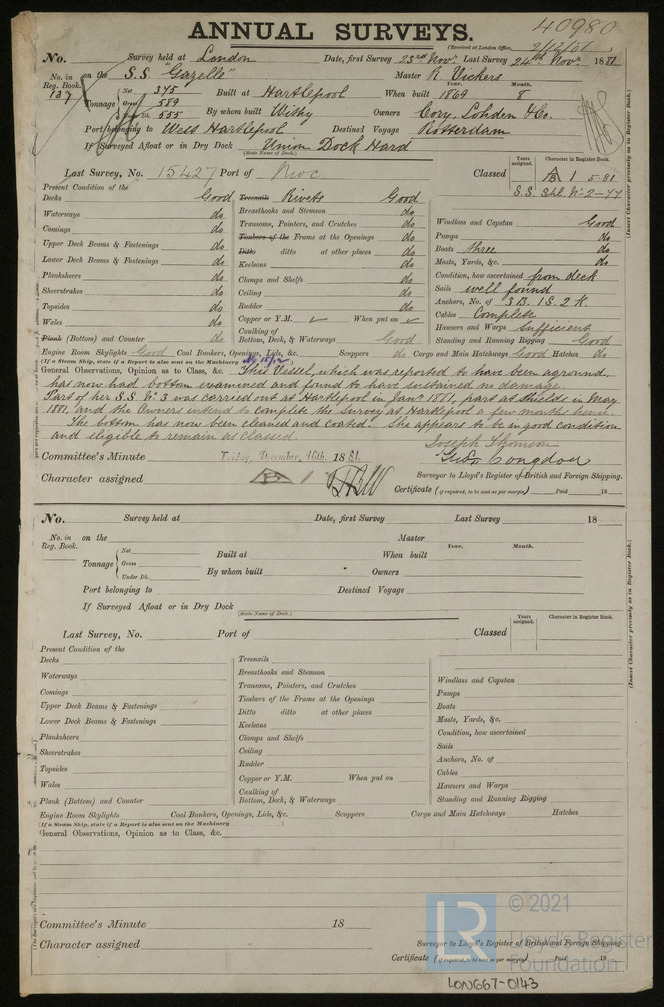 ANNUAL SURVEYS.
40980
(Received at London Office, 2/12/81)
No. Survey held at London Date, first Survey 23rd Novr Last Survey 24th Novr. 1881
No. in Reg. Book. 137 on the S.S. "Gazelle" Master R. Vickers
Tonnage Net 375 Gross 589 Under Dk. 555
Built at Hartlepool When built Year. 1864 Month. 8
By whom built Withy Owners Cory, Lohden & Co.
Port belonging to West Hartlepool Destined Voyage Rotterdam
If Surveyed Afloat or in Dry Dock Union Dock Hard
(State Name of Dock.)
Last Survey, No. 15427 Port of Nwc Classed
Years assigned. Character in Register Book.
1 5-81
S.S.
(Insert Character precisely as in Register Book.)
Present Condition of the
Decks Good
Waterways do
Comings do
Upper Deck Beams & Fastenings do
Lower Deck Beams & Fastenings do
Planksheers do
Sheerstrakes do
Topsides do
Wales do
Plank (Bottom) and Counter do
Treenails Rivets Good
Breasthooks and Stemson do
Transoms, Pointers, and Crutches do
Timbers of the Frame at the Openings do
Ditto ditto at other places do
Keelsons do
Clamps and Shelfs do
Ceiling do
Rudder do
Copper or Y.M. ✓ When put on ✓
Caulking of
Bottom, Deck, & Waterways Good
Windlass and Capstan Good
Pumps do
Boats three do
Masts, Yards, &c. do
Condition, how ascertained from deck
Sails well found
Anchors, No. of 3 B. 1 S. 2 K
Cables Complete
Hawsers and Warps Sufficient
Standing and Running Rigging Good
Engine Room Skylights Good Coal Bunkers, Openings, Lids, &c. Scuppers do Cargo and Main Hatchways Good Hatches do
(If a Steam Ship, state if a Report is also sent on the Machinery
General Observations, Opinion as to Class, &c. This Vessel, which was reported to have been aground,
has now had bottom examined and found to have sustained no damage.
Part of her S.S. No. 3 was carried out at Hartlepool in Jany 1881, part at Shields in May
1881, and the Owners intend to complete the Survey at Hartlepool a few months hence.
The bottom has now been cleaned and coated. She appears to be in good condition
and eligible to remain as classed.
Joseph Thomson
Committee's Minute Friday, December, 16th. 1881. Geo. Congdon
Character assigned 1 Surveyor to Lloyd's Register of British and Foreign Shipping.
Certificate (if required, to be sent as per margin) Paid 18
No. Survey held at Date, first Survey Last Survey 18
No. in Reg. Book. on the Master
Tonnage Net Gross Under Dk.
Built at When built Year. Month.
By whom built Owners
Port belonging to Destined Voyage
If Surveyed Afloat or in Dry Dock
(State Name of Dock.)
Last Survey, No. Port of Classed
Years assigned. Character in Register Book.
(Insert Character precisely as in Register Book.)
Present Condition of the
Decks
Waterways
Comings
Upper Deck Beams & Fastenings
Lower Deck Beams & Fastenings
Planksheers
Sheerstrakes
Topsides
Wales
Plank (Bottom) and Counter
Treenails
Breasthooks and Stemson
Transoms, Pointers, and Crutches
Timbers of the Frame at the Openings
Ditto ditto at other places
Keelsons
Clamps and Shelfs
Ceiling
Rudder
Copper or Y.M. When put on
Caulking of
Bottom, Deck, & Waterways
Windlass and Capstan
Pumps
Boats
Masts, Yards, &c.
Condition, how ascertained
Sails
Anchors, No. of
Cables
Hawsers and Warps
Standing and Running Rigging
Engine Room Skylights Coal Bunkers, Openings, Lids, &c. Scuppers Cargo and Main Hatchways Hatches
(If a Steam Ship, state if a Report is also sent on the Machinery )
General Observations, Opinion as to Class, &c.
Committee's Minute 18
Character assigned Surveyor to Lloyd's Register of British and Foreign Shipping.
Certificate (if required, to be sent as per margin) Paid 18
LR © 2021
Lloyd's Register
Foundation
LON667-0143